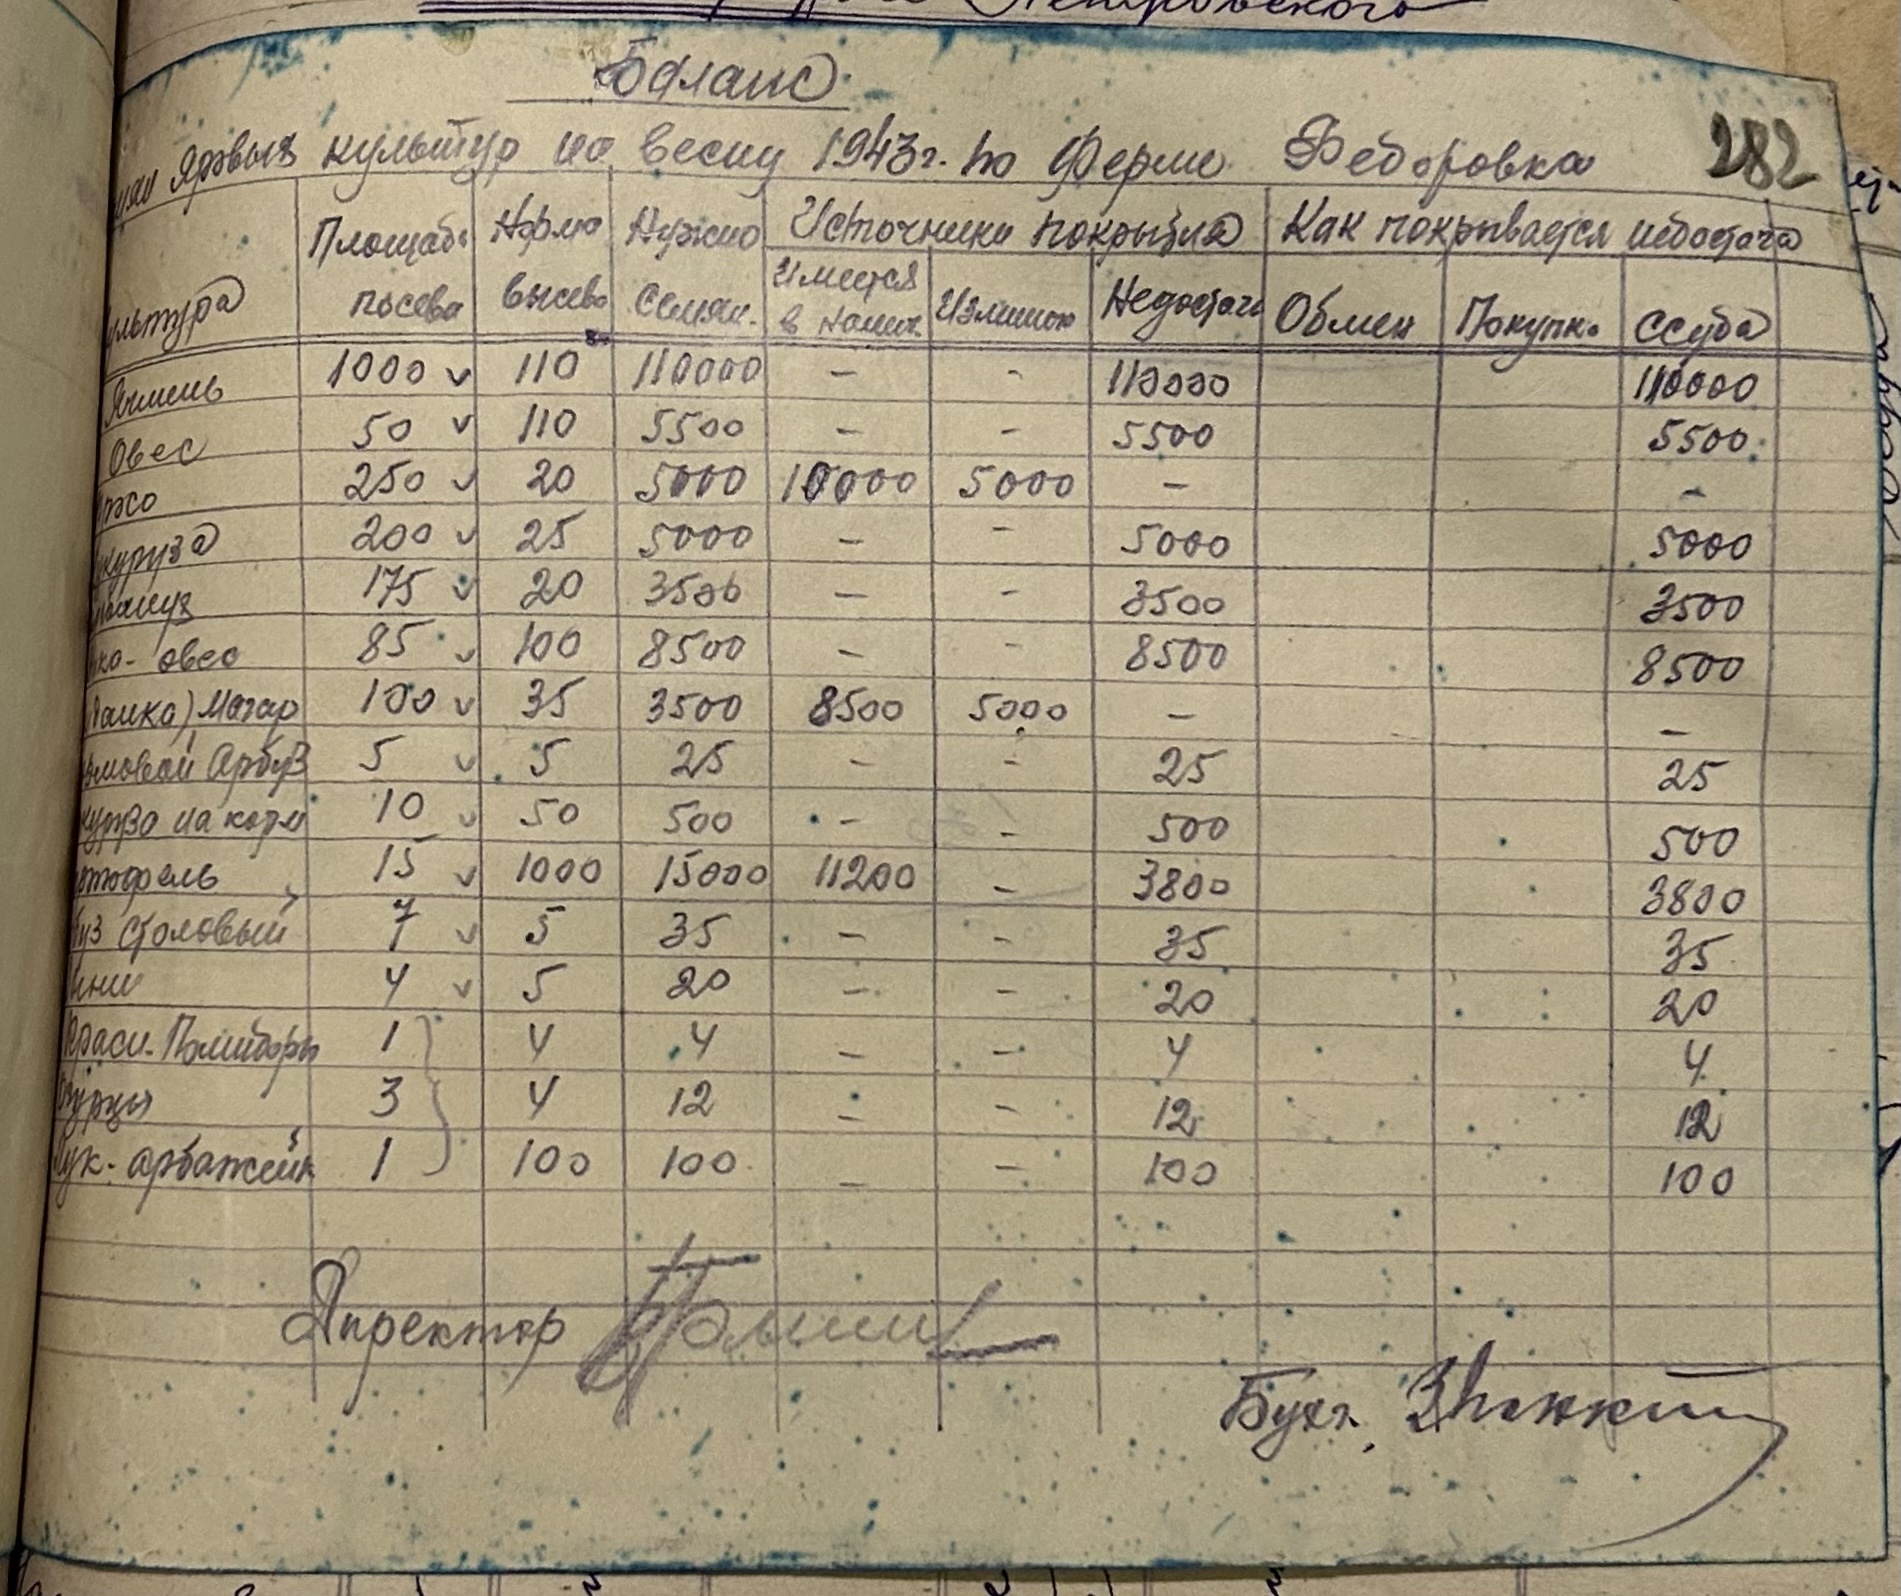 Петровского
Баланс
семян Яровых культур на весну 1943г. по Ферме Федоровка 282
Культура Площадь посева Норма высева Нужно семян. Источники покрытия Как покрывается недостача
Имеется в налич. Излишки Недостача Обмен Покупка Ссуда
Ячмень 1000 110 110000 – - 110000 110000
Овес 50 110 5500 – – 5500 5500
250 20 5000 10000 5000 – –
Кукуруза 200 25 5000 – - 5000 5000
175 20 3500 – - 3500 3500
Вико-овес 85 100 8500 – - 8500 8500
Могар 100 35 3500 8500 5000 – –
Арбуз 5 5 25 – - 25 25
на корм 10 50 500 – – 500 500
Картофель 15 1000 15000 11200 – 3800 3800
Арбуз столовый 7 5 35 – - 35 35
Дыни 4 5 20 – – 20 20
Красн. Помидоры 1 4 4 – – 4 4
Огурцы 3 4 12 – – 12 12
Лук-арбажейк 1 100 100 – – 100 100
Директор
Бухг.